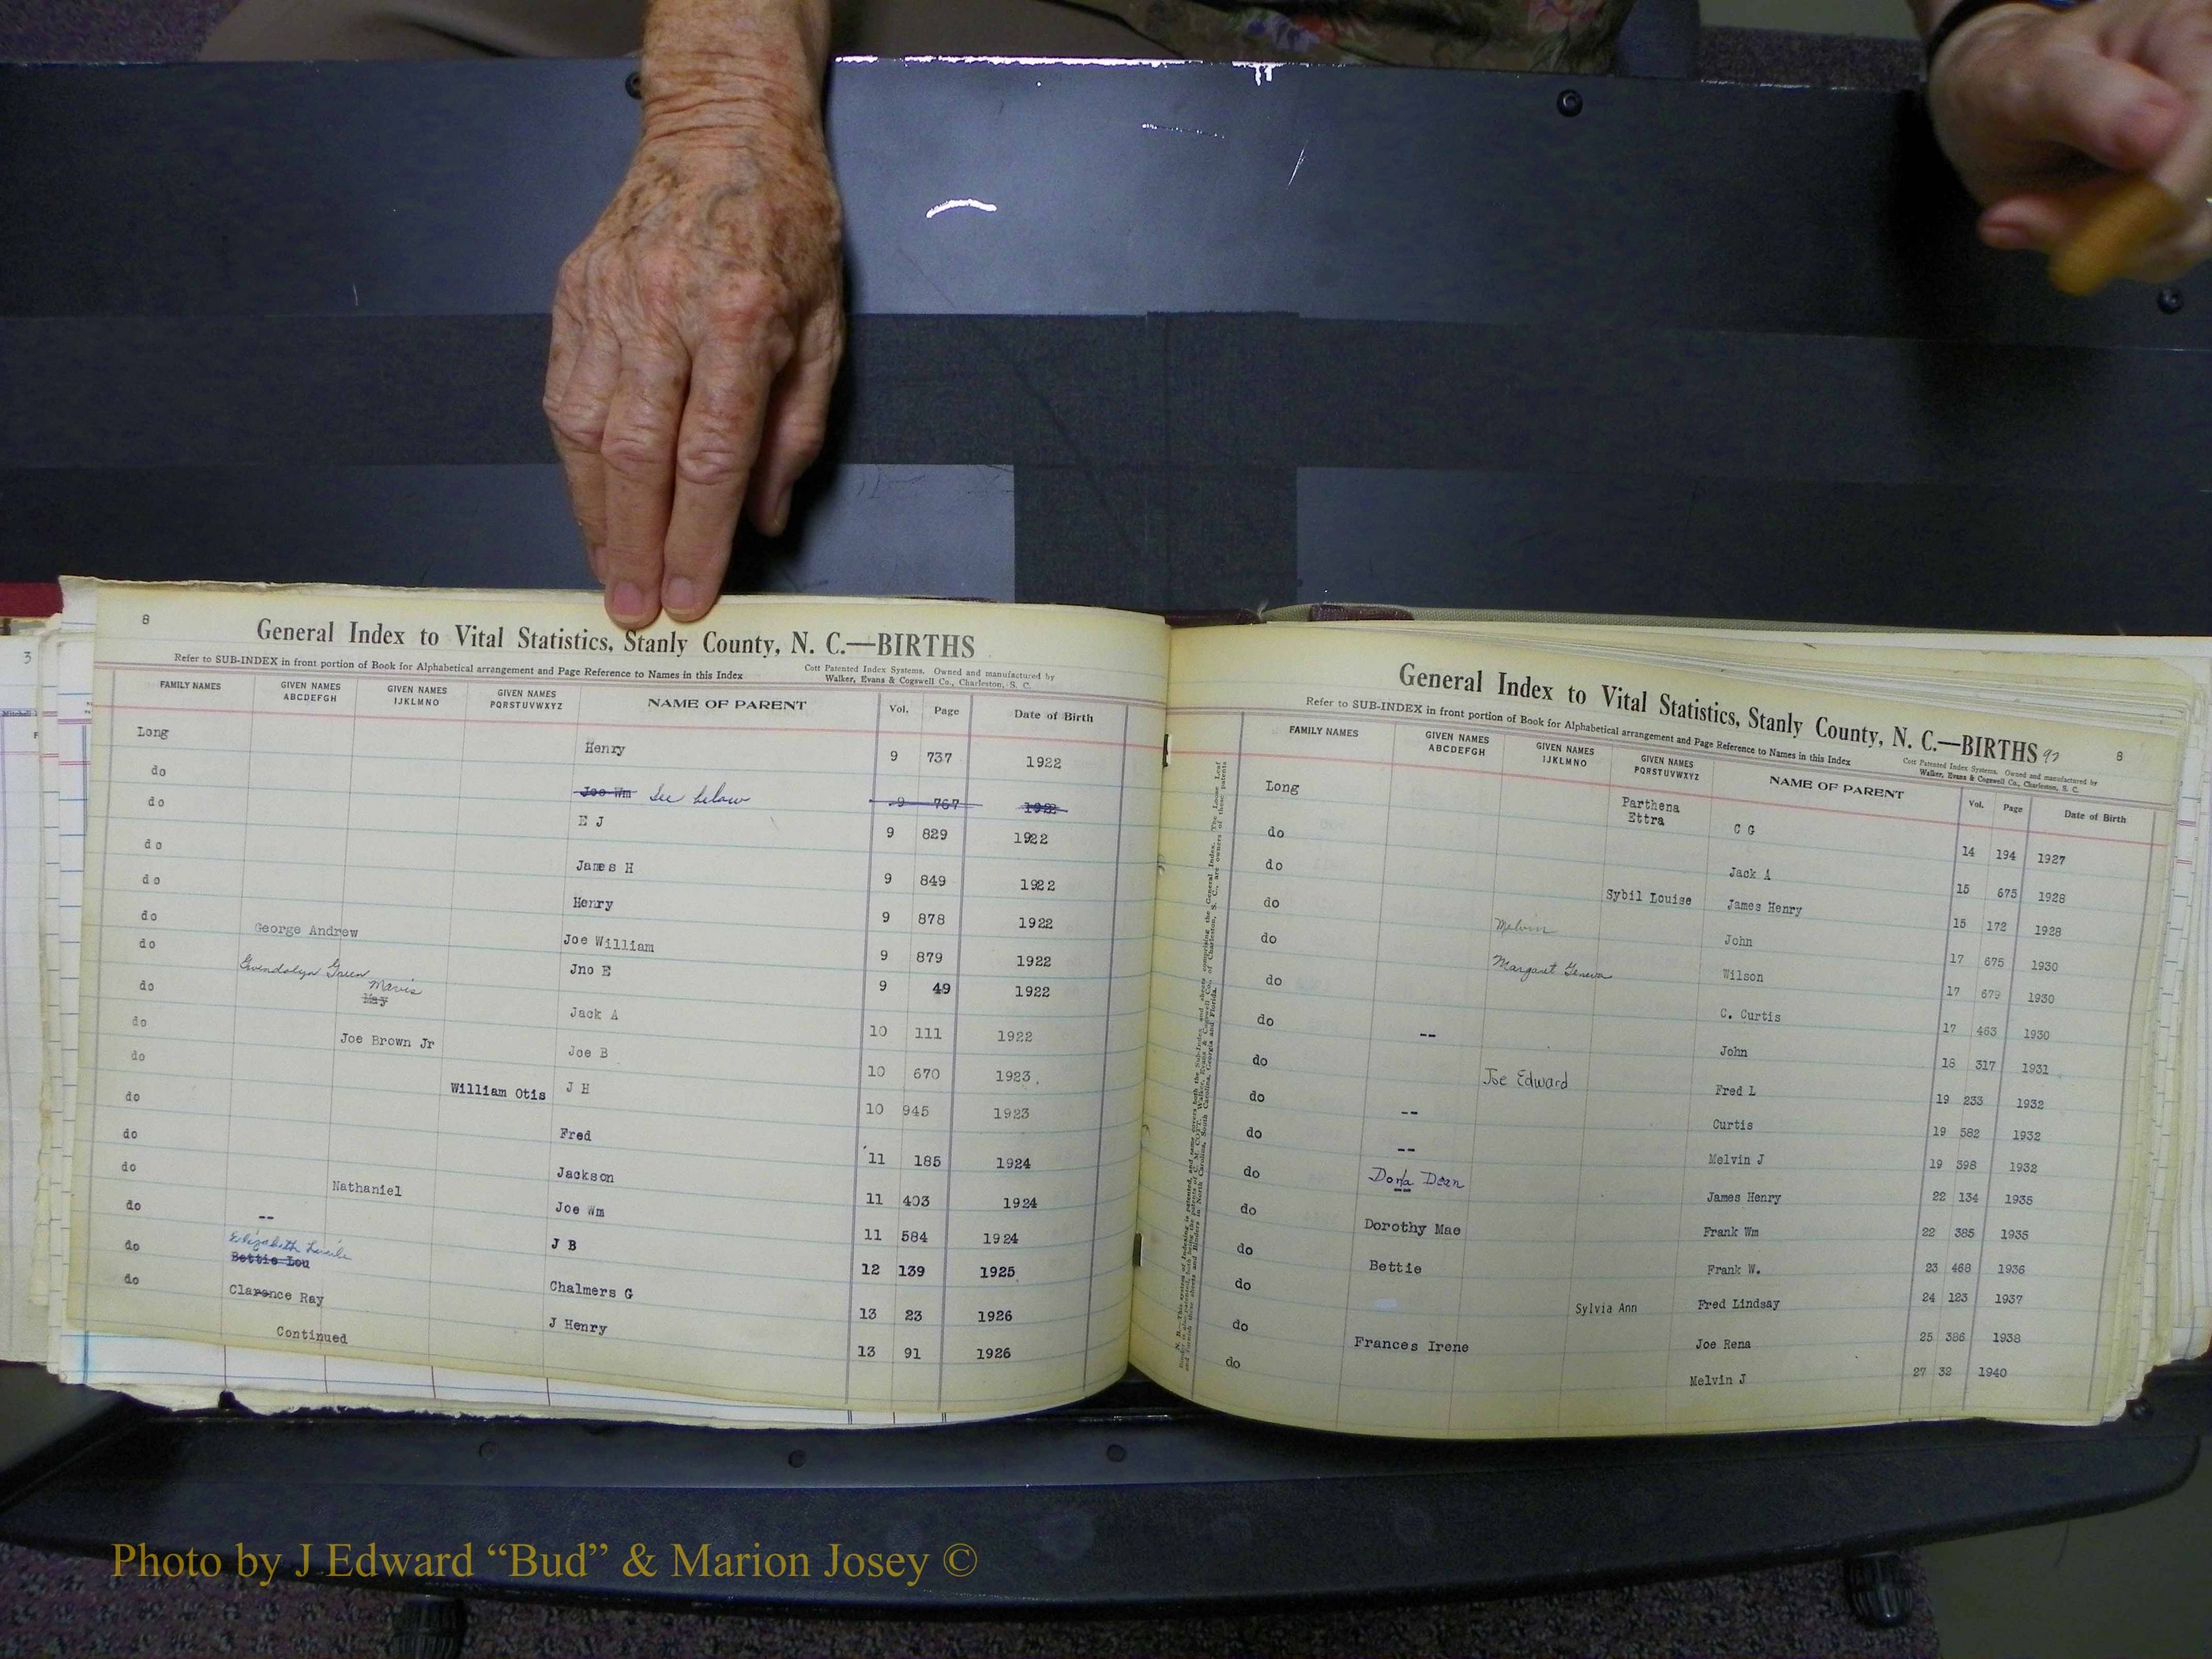 8
General Index to Vital Statistics, Stanly County, N. C.—BIRTHS
Refer to SUB-INDEX in front portion of Book for Alphabetical arrangement and Page Reference to Names in this Index
Cott Patented Index Systems. Owned and manufactured by
Walker, Evans & Cogswell Co., Charleston, S. C.
FAMILY NAMES GIVEN NAMES ABCDEFGH GIVEN NAMES IJKLMNO GIVEN NAMES PQRSTUVWXYZ NAME OF PARENT Vol. Page Date of Birth
Long Henry 9 737 1922
do Joe Wm See below 9 767 1922
do E J 9 829 1922
do James H 9 849 1922
do Henry 9 878 1922
do George Andrew Joe William 9 879 1922
do Gwendolyn Green Jno E 9 49 1922
do Mavis May Jack A 10 111 1922
do Joe Brown Jr Joe B 10 670 1923
do William Otis J H 10 945 1923
do Fred 11 185 1924
do Jackson 11 403 1924
do Nathaniel Joe Wm 11 584 1924
do -- J B 12 139 1925
do Elizabeth Lucile Bettie Lou Chalmers G 13 23 1926
do Clarence Ray J Henry 13 91 1926
Continued
General Index to Vital Statistics, Stanly County, N. C.—BIRTHS 97 8
Refer to SUB-INDEX in front portion of Book for Alphabetical arrangement and Page Reference to Names in this Index
Cott Patented Index Systems. Owned and manufactured by
Walker, Evans & Cogswell Co., Charleston, S. C.
FAMILY NAMES GIVEN NAMES ABCDEFGH GIVEN NAMES IJKLMNO GIVEN NAMES PQRSTUVWXYZ NAME OF PARENT Vol. Page Date of Birth
Long Parthena Ettra C G 14 194 1927
do Jack A 15 675 1928
do Sybil Louise James Henry 15 172 1928
do Melvin John 17 675 1930
do Margaret Geneva Wilson 17 679 1930
do C. Curtis 17 463 1930
do -- John 18 317 1931
do Joe Edward Fred L 19 233 1932
do -- Curtis 19 582 1932
do -- Melvin J 19 398 1932
do Dona Dean James Henry 22 134 1935
do Dorothy Mae Frank Wm 22 385 1935
do Bettie Frank W. 23 468 1936
do Sylvia Ann Fred Lindsay 24 123 1937
do Frances Irene Joe Rena 25 386 1938
do Melvin J 27 32 1940
Photo by J Edward “Bud” & Marion Josey ©